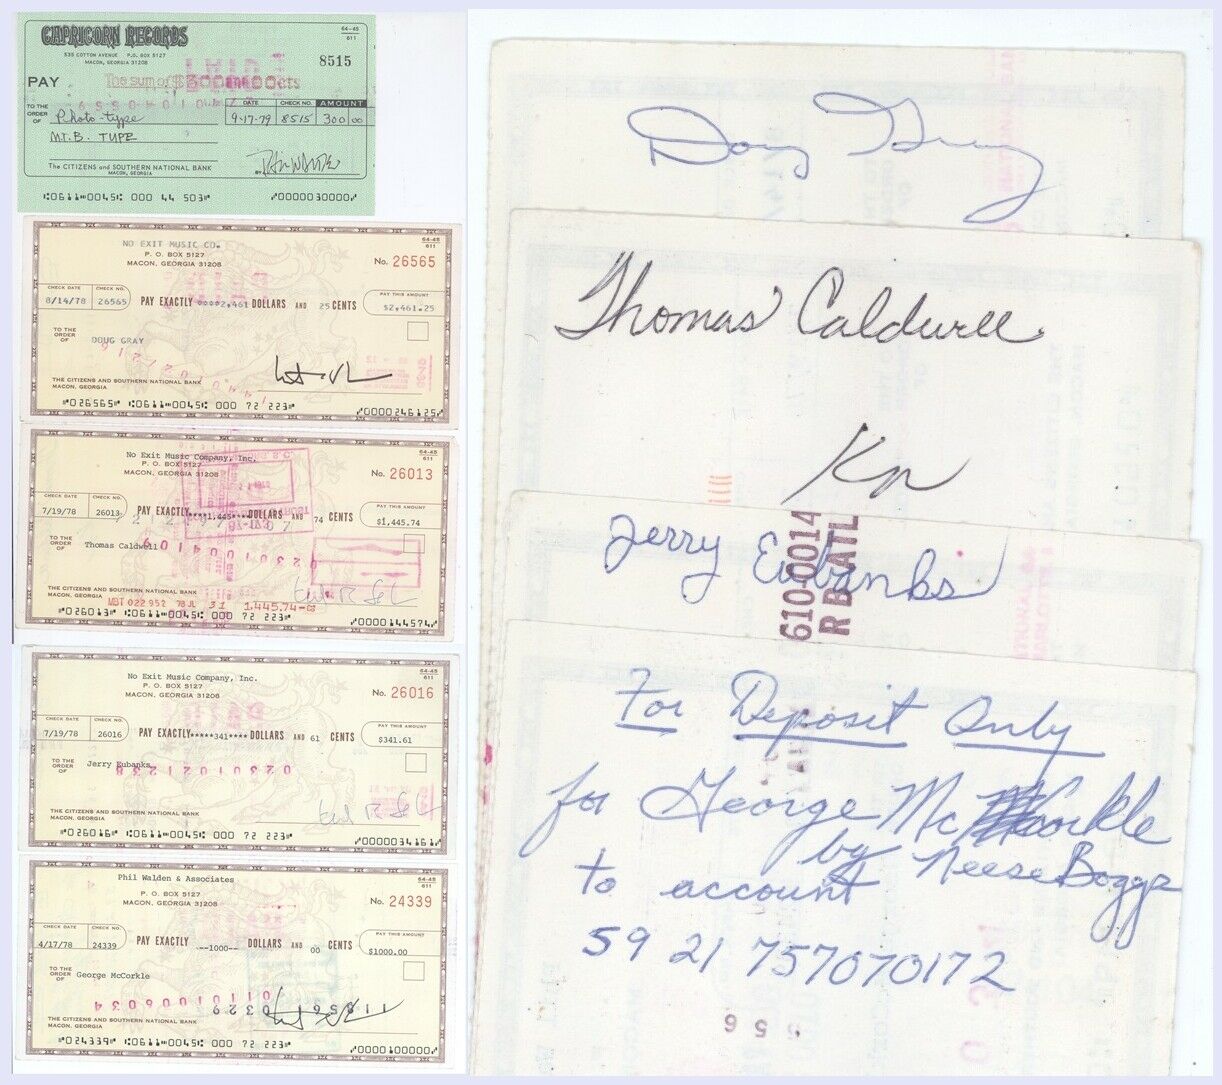 CAPRICORN RECORDS
535 COTTON AVENUE P.O. BOX 5127
MACON, GEORGIA 31208
64-45
611
8515
PAY The sum of $300 and 00 cts
TO THE ORDER OF
Photo-type
M.T.B. TYPE
DATE CHECK NO. AMOUNT
9-17-79 8515 300 00
The CITIZENS and SOUTHERN NATIONAL BANK
MACON, GEORGIA
BY
⑆0611⑉0045⑆ 000 44 503⑈ ⑈0000030000⑈
NO EXIT MUSIC CO.
P. O. BOX 5127
MACON, GEORGIA 31208
64-45
611
No. 26565
CHECK DATE CHECK NO.
8/14/78 26565
PAY EXACTLY 2,461 DOLLARS AND 25 CENTS
PAY THIS AMOUNT
$2,461.25
TO THE ORDER OF
DOUG GRAY
THE CITIZENS AND SOUTHERN NATIONAL BANK
MACON, GEORGIA
⑈026565⑈ ⑆0611⑉0045⑆ 000 72 223⑈ ⑈0000246125⑈
No Exit Music Company, Inc.
P. O. BOX 5127
MACON, GEORGIA 31208
64-45
611
No. 26013
CHECK DATE CHECK NO.
7/19/78 26013
PAY EXACTLY*****1,445**** DOLLARS AND 74 CENTS
PAY THIS AMOUNT
$1,445.74
TO THE ORDER OF
Thomas Caldwell
THE CITIZENS AND SOUTHERN NATIONAL BANK
MACON, GEORGIA
MBT 022952 78 JL 31 1,445.74
⑈026013⑈ ⑆0611⑉0045⑆ 000 72 223⑈ ⑈0000144574⑈
No Exit Music Company, Inc.
P. O. BOX 5127
MACON, GEORGIA 31208
64-45
611
No. 26016
CHECK DATE CHECK NO.
7/19/78 26016
PAY EXACTLY*****341**** DOLLARS AND 61 CENTS
PAY THIS AMOUNT
$341.61
TO THE ORDER OF
Jerry Eubanks
THE CITIZENS AND SOUTHERN NATIONAL BANK
MACON, GEORGIA
⑈026016⑈ ⑆0611⑉0045⑆ 000 72 223⑈ ⑈0000034161⑈
Phil Walden & Associates
P. O. BOX 5127
MACON, GEORGIA 31208
64-45
611
No. 24339
CHECK DATE CHECK NO.
4/17/78 24339
PAY EXACTLY ---1000-- DOLLARS AND 00 CENTS
PAY THIS AMOUNT
$1000.00
TO THE ORDER OF
George McCorkle
THE CITIZENS AND SOUTHERN NATIONAL BANK
MACON, GEORGIA
⑈024339⑈ ⑆0611⑉0045⑆ 000 72 223⑈ ⑈0000100000⑈
Doug Gray
Thomas Caldwell
Jerry Eubanks
610-0014
R B ATL
For Deposit Only
for George McCorkle
by Neese Boggs
to account
59 21 757070172